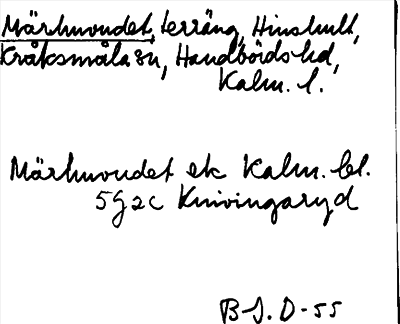 Märhuvudet, terräng, Hinshult,
Kråksmåla sn, Handbörds hd,
Kalm. l.
Märhuvudet ek Kalm. bl.
5G2c Knivingaryd
B-S. D-55